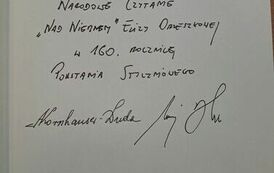 Narodowe Czytanie
„Nad Niemnem" Elizy Orzeszkowej
w 160. rocznicę
Powstania Styczniowego
AKornhauser-Duda